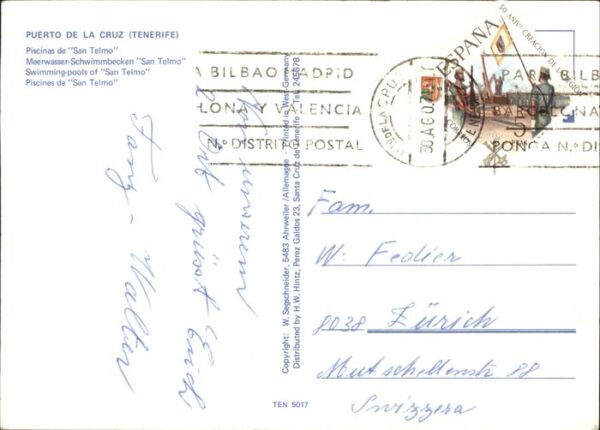 PUERTO DE LA CRUZ (TENERIFE)
Piscinas de "San Telmo"
Meerwasser-Schwimmbecken "San Telmo"
Swimming-pools of "San Telmo"
Piscines de "San Telmo"
A BILBAO MADRID
LONA Y VALENCIA
N.º DISTRITO POSTAL
30 AGO
ESPAÑA
50 ANIVº CREACION DE
PARA BILB
BARCELONA
PONGA N.º DI
unserem
Ort grüsst Euch
Walter
Copyright: W. Segschneider, 5483 Ahrweiler/Allemagne · Printed in West-Germany
Distributed by H.W. Hintz, Perez Galdos 23, Santa Cruz de Tenerife · Tel. 245678
Fam.
W. Fedier
8038 Zürich
Mutschellenstr 88
Svizzera
TEN 5017